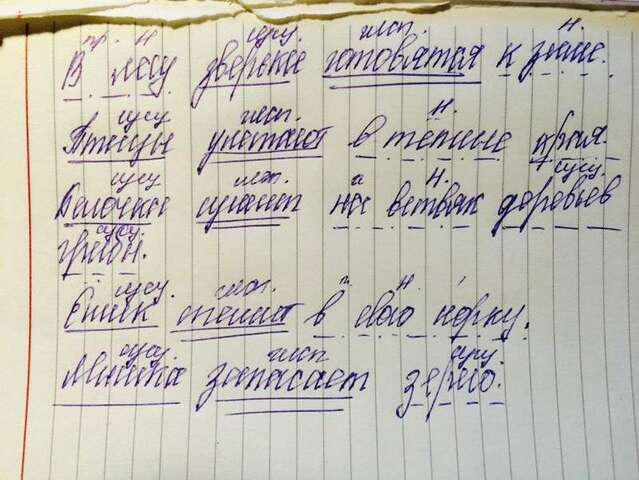 пр. Н сущ. глаг. Н.
В лесу зверьки готовятся к зиме.
сущ глаг. Н.
Птицы улетают в теплые края.
сущ глаг. Н. сущ.
Белочки сушат на ветвях деревьев
сущ.
грибы.
сущ. глаг. п. Н.
Ёжик спешит в свою норку.
сущ. глаг сущ.
Мышка запасает зерно.